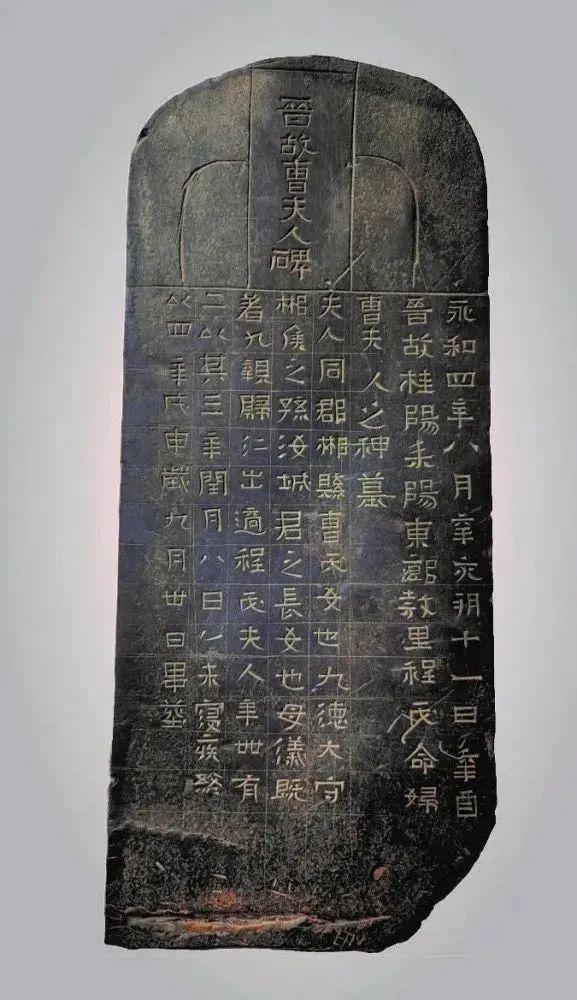 晉故曹夫人碑
永和四年八月辛亥朔十一日辛酉
晉故桂陽耒陽東鄉敎里程氏命婦
曹夫人之神墓
夫人同郡郴縣曹氏女也九德大守
郴侯之孫汝城君之長女也母儀既
著九親歸仁出適程氏夫人年卅有
二以其三年閏月八日乙未寢疾終
以四年戊申歲九月卅日畢葬